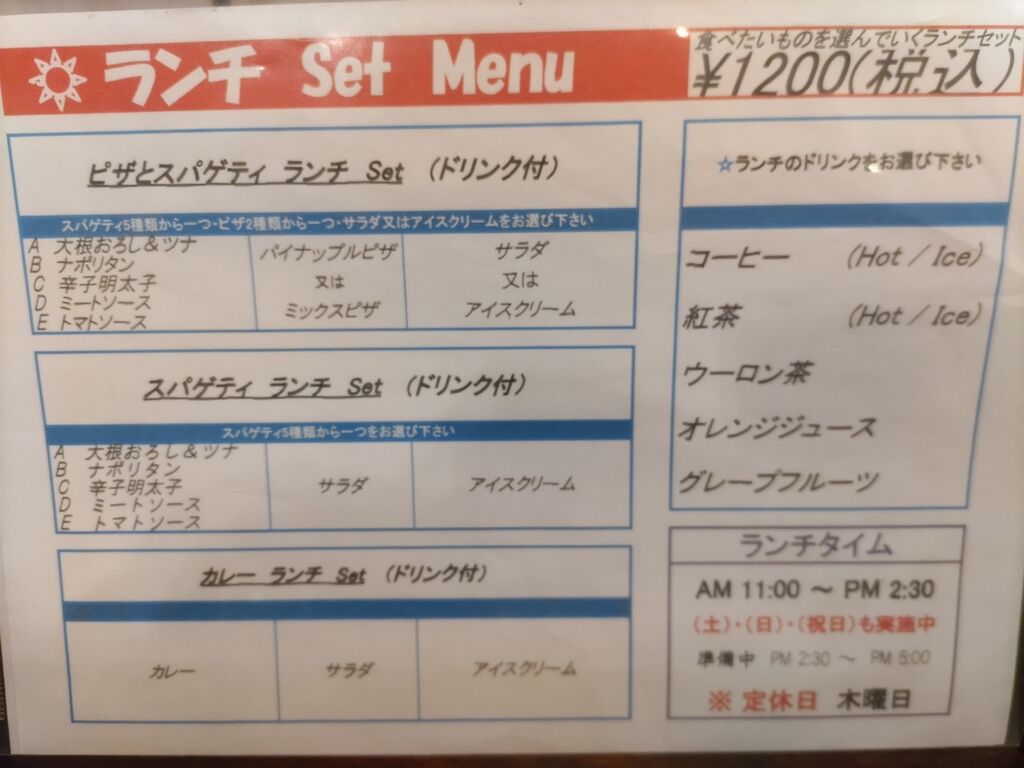 ランチ Set Menu
食べたいものを選んでいくランチセット
¥1200(税込)
ピザとスパゲティ ランチ Set (ドリンク付)
スパゲティ5種類から一つ・ピザ2種類から一つ・サラダ又はアイスクリームをお選び下さい
A 大根おろし&ツナ
B ナポリタン
C 辛子明太子
D ミートソース
E トマトソース
パイナップルピザ
又は
ミックスピザ
サラダ
又は
アイスクリーム
スパゲティ ランチ Set (ドリンク付)
スパゲティ5種類から一つをお選び下さい
A 大根おろし&ツナ
B ナポリタン
C 辛子明太子
D ミートソース
E トマトソース
サラダ
アイスクリーム
カレー ランチ Set (ドリンク付)
カレー
サラダ
アイスクリーム
☆ランチのドリンクをお選び下さい
コーヒー (Hot / Ice)
紅茶 (Hot / Ice)
ウーロン茶
オレンジジュース
グレープフルーツ
ランチタイム
AM 11:00 ～ PM 2:30
(土)・(日)・(祝日)も実施中
準備中 PM 2:30 ～ PM 5:00
※ 定休日 木曜日